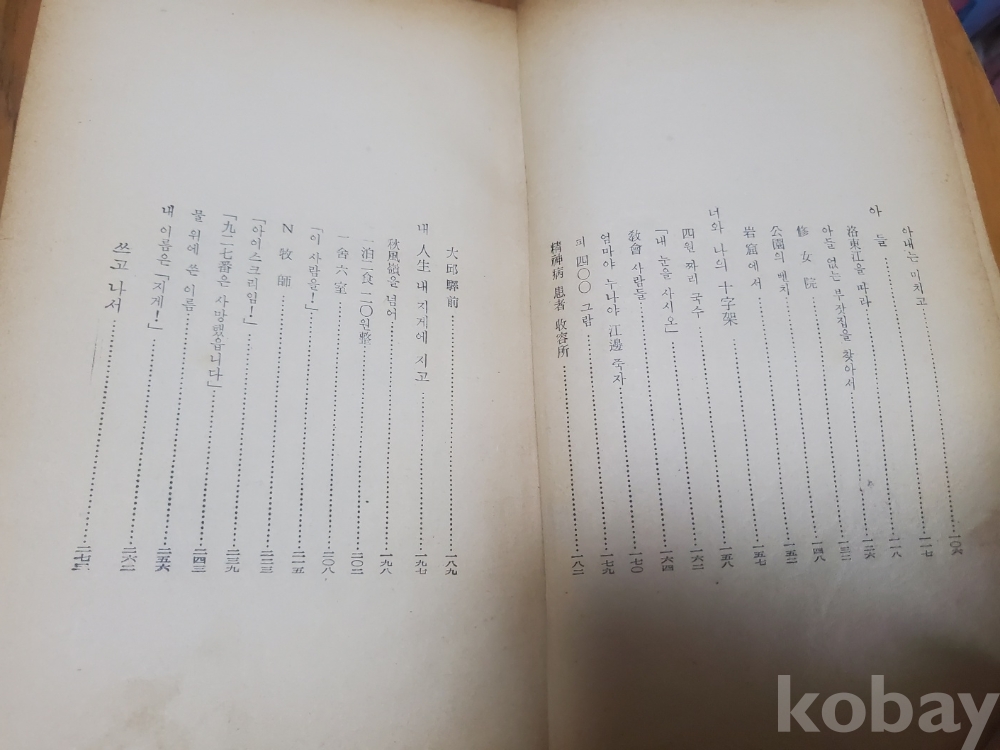 아내는 미치고 一〇六
아 들 一一七
洛東江을 따라 一一八
아들 없는 부잣집을 찾아서 一二六
修 女 院 一三二
公園의 벤치 一四八
岩窟에서 一五二
너와 나의 十字架 一五七
四원 짜리 국수 一五八
「내 눈을 사시오」 一六二
敎會 사람들 一六四
엄마야 누나야 江邊 죽자 一七〇
피 四〇〇 그람 一七九
精神病 患者 收容所 一八二
大邱驛前 一八九
내 人生 내 지게에 시고 一九七
秋風嶺을 넘어 一九八
一泊二食一二〇원整 二〇二
一舍六室 二〇八
「이 사람을!」 二一五
N 牧師 二二三
「아이스크리임!」 二三九
「九二七番은 사망했읍니다」 二四三
물 위에 쓴 이름 二五六
내 이름은 「지게!」 二六二
쓰고 나서 二七三
kobay